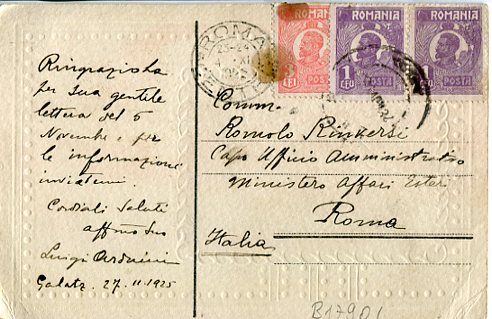 Ringrazio La
per sua gentile
lettera del 5
Novembre e per
le informazioni
inviatemi.
Cordiali Saluti
affmo Suo
Luigi Arduini
Galatz. 27.11.1925
ROMA
23-24
XI
ROMANIA
3
LEI
POSTA
ROMANIA
1
LEU
POSTA
ROMANIA
1
LEU
POSTA
Comm.
Romolo
Capo Ufficio Amministrativo
Ministero Affari Esteri
Roma
Italia
B17901